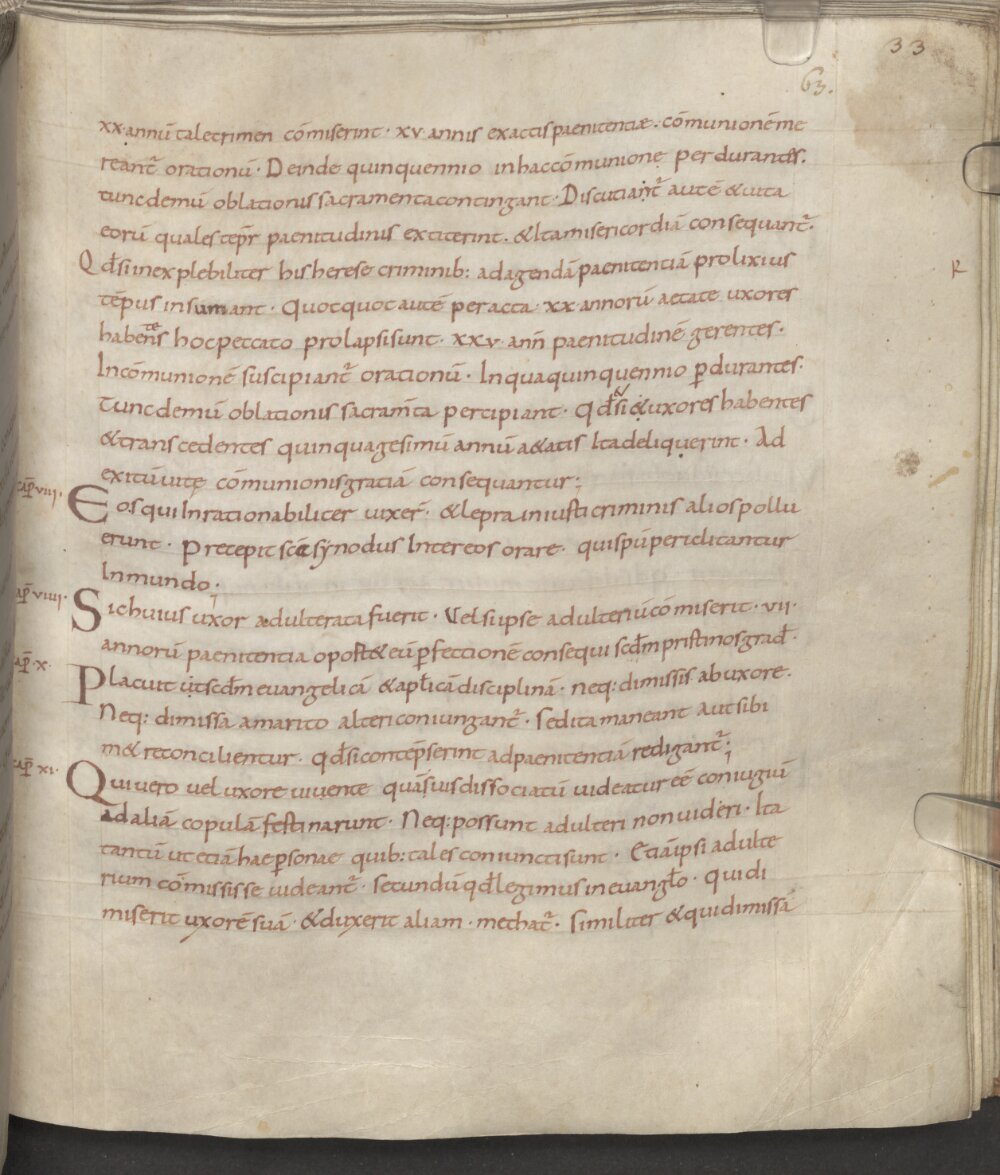 33
63.
xx· annū tale crimen cōmiserint· xv annis exactis paenitentiae· cōmunionē me
reant᷑ orationū· Deinde quinquennio in hac cōmunione perdurantes.
tunc demū oblationis sacramenta contingant· Discutiant᷑ autē & uita
eorū quales tēpr̄ paenitudinis extiterint· & Ita misericordiā consequant᷑.
Qđ si inexplebiliter his herese criminib: ad agendā paenitentiā prolixius
tēpus insumant· Quotquot autē peracta xx annorū aetate uxores
habentes hoc peccato prolapsi sunt· xxv· ann̄ paenitudinē gerentes·
In cōmunionē suscipiant᷑ orationū· In qua quinquennio ꝑdurantes·
Tunc demū oblationis sacram̄ta percipiant· qđ si & uxores habentes
& transcedentes quinquagesimū annū a&atis Ita deliquerint· Ad
exitū uitę cōmunionis gratiā consequantur;
cap̄ viii· Eos qui Inrationabiliter uixer̄· & lepra iniusti criminis alios pollu
erunt· Precepit sc̄a synodus Inter eos orare· qui spū periclitantur
Inmundo;
cap̄ viiii· Si cuius uxor adulterata fuerit· Vel si ipse adulteriū cōmiserit· vii·
annorū paenitentia oport& eū ꝑfectionē consequi scđm pristinos grad̄·
cap̄ x· Placuit ut scđm euangelicā & apl̄icā disciplinā· neq: dimissis ab uxore·
Neq: dimissa a marito alteri coniungant᷑· sed ita maneant aut sibi
m& reconcilientur· qđ si contēpserint ad paenitentiā redigant᷑;
cap̄ xi· Qui uero uel uxore uiuente quāuis dissociatū uideatur eē coniugiū
ad aliā copulā festinarunt· Neq: possunt adulteri non uideri· Ita
tantū ut etiā hae ꝑsonae quib: tales coniuncti sunt· Etiā ipsi adulte
rium cōmississe uideant᷑· secundū qđ legimus in euangl̄o· qui di
miserit uxorē suā· & duxerit aliam· mechat᷑· similiter & qui dimissā
R